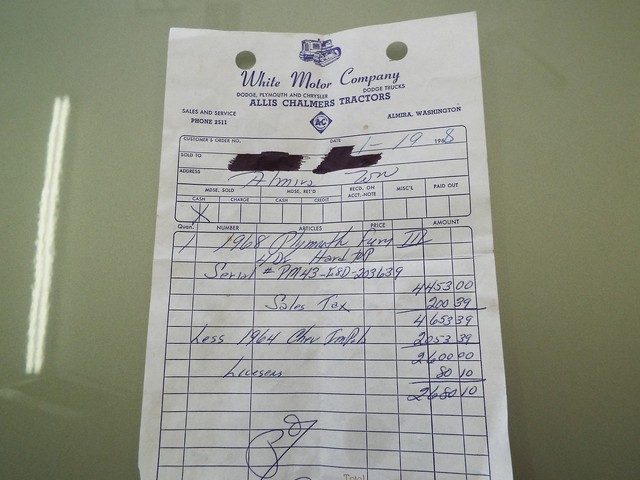 White Motor Company
DODGE, PLYMOUTH AND CHRYSLER DODGE TRUCKS
ALLIS CHALMERS TRACTORS
SALES AND SERVICE
PHONE 2511
AC
ALMIRA, WASHINGTON
CUSTOMER'S ORDER NO. DATE 1-19 1968
SOLD TO
ADDRESS Almira
MDSE. SOLD MDSE. RET'D RECD. ON ACCT.-NOTE MISC'L PAID OUT
CASH CHARGE CASH CREDIT
X
Quan. NUMBER ARTICLES PRICE AMOUNT
1 1968 Plymouth Fury III
4 DR Hard top
Serial # PM43-F8D-203639
4453 00
Sales Tax 200 39
4653 39
Less 1964 Chev Impala 2053 39
2600 00
Licesens 80 10
2680 10
Pd
Total